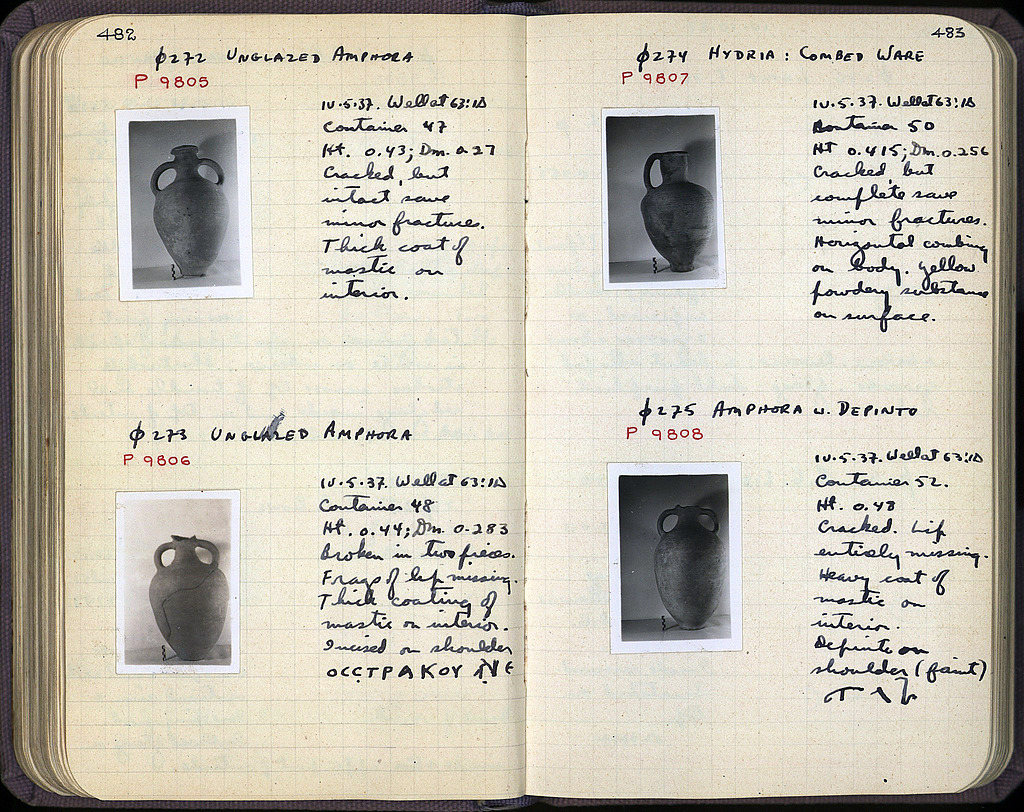 482
φ272 UNGLAZED AMPHORA
P 9805
IV.5.37. Well at 63:ΙΔ
Container 47
Ht. 0.43; Dm. 0.27
Cracked, but
intact save
minor fracture.
Thick coat of
mastic on
interior.
φ273 UNGLAZED AMPHORA
P 9806
IV.5.37. Well at 63:ΙΔ
Container 48
Ht. 0.44; Dm. 0.283
Broken in two pieces.
Frags of lip missing.
Thick coating of
mastic on interior.
Incised on shoulder
OCCTPAKOY
483
φ274 HYDRIA: COMBED WARE
P 9807
IV.5.37. Well at 63:ΙΔ
Container 50
Ht 0.415; Dm. 0.256
Cracked, but
complete save
minor fractures.
Horizontal combing
on body. Yellow
powdery substance
on surface.
φ275 AMPHORA W. DEPINTO
P 9808
IV.5.37. Well at 63:ΙΔ
Container 52.
Ht. 0.48
Cracked. Lip
entirely missing.
Heavy coat of
mastic on
interior.
Depinto on
shoulder (faint)